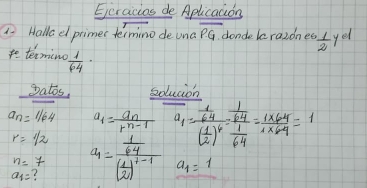 Ejercicios de Aplicación
1- Halla el primer término de una P.G. donde la razón es 1/2 y el
7º término 1/64.
Datos.
Solución
an = 1/64
r = 1/2
n = 7
a1 = ?
a1 = an / r^n-1
a1 = 1/64 / (1/2)^7-1
a1 = 1/64 / (1/2)^6 = 1/64 / 1/64 = 1x64 / 1x64 = 1
a1 = 1